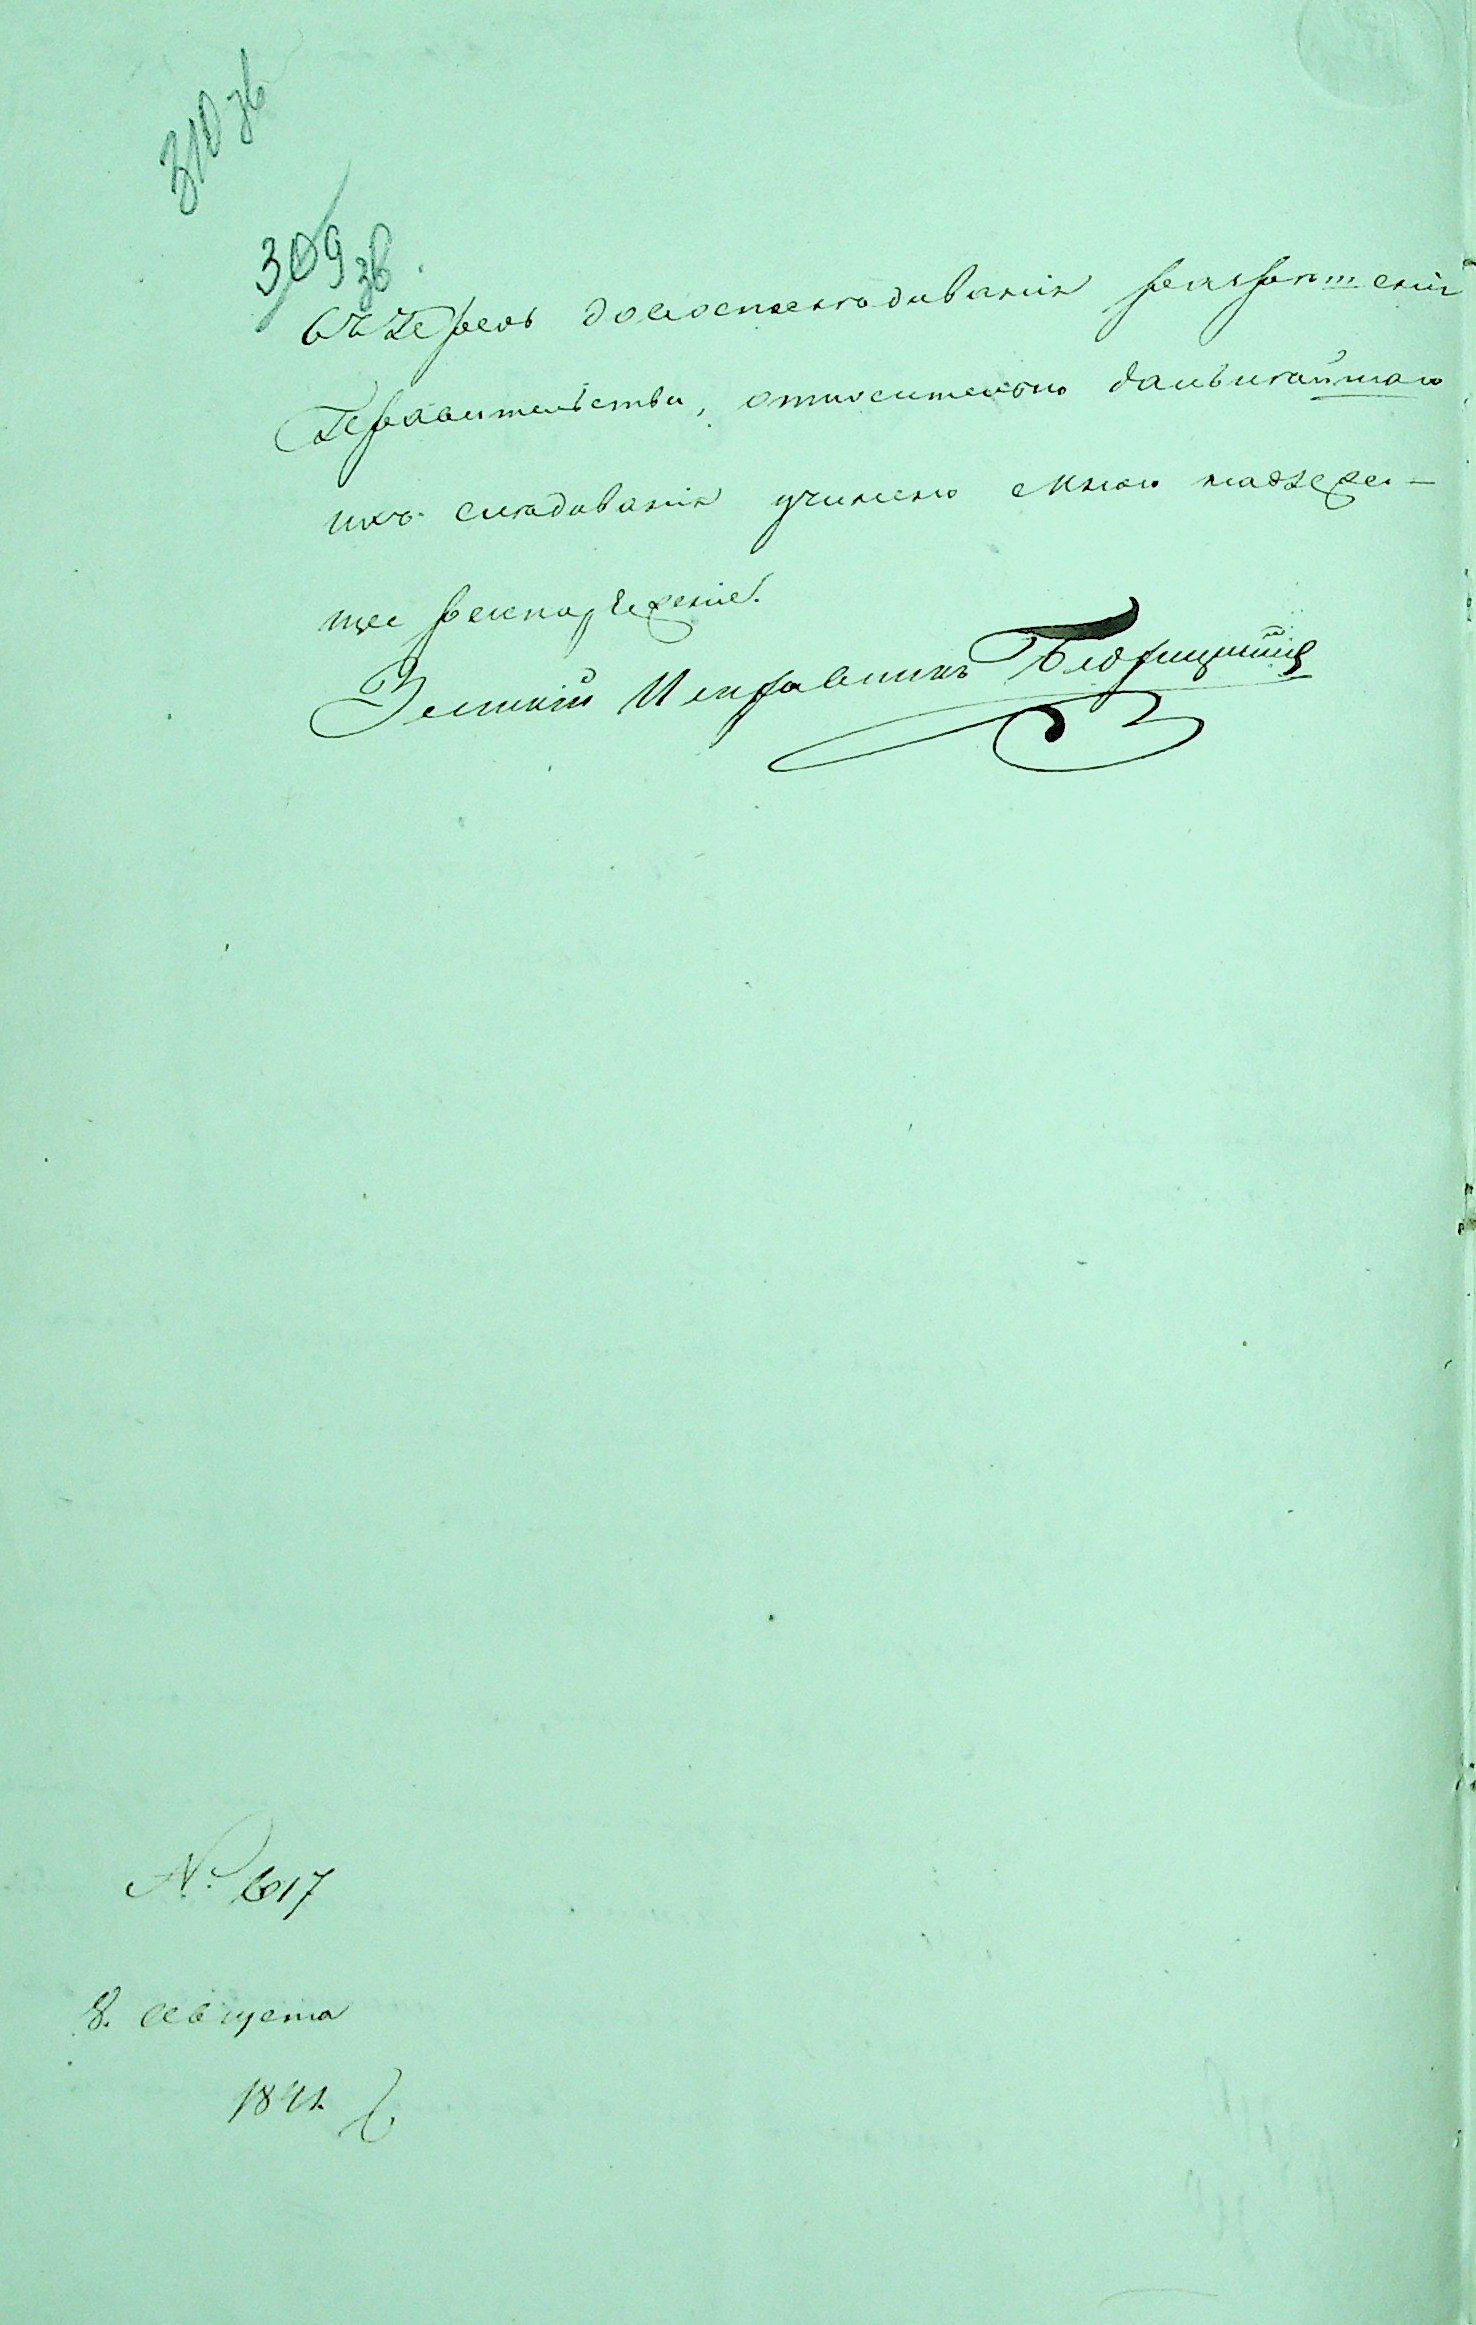 310 зв
309 зв.
въ предь до воспоследованія разрешенія
Правительства, относительно дальнейшаго
ихъ следованія учинено мною надлежа-
щее распоряжение.
Земский Исправникъ
№ 617
8. Августа
1841.